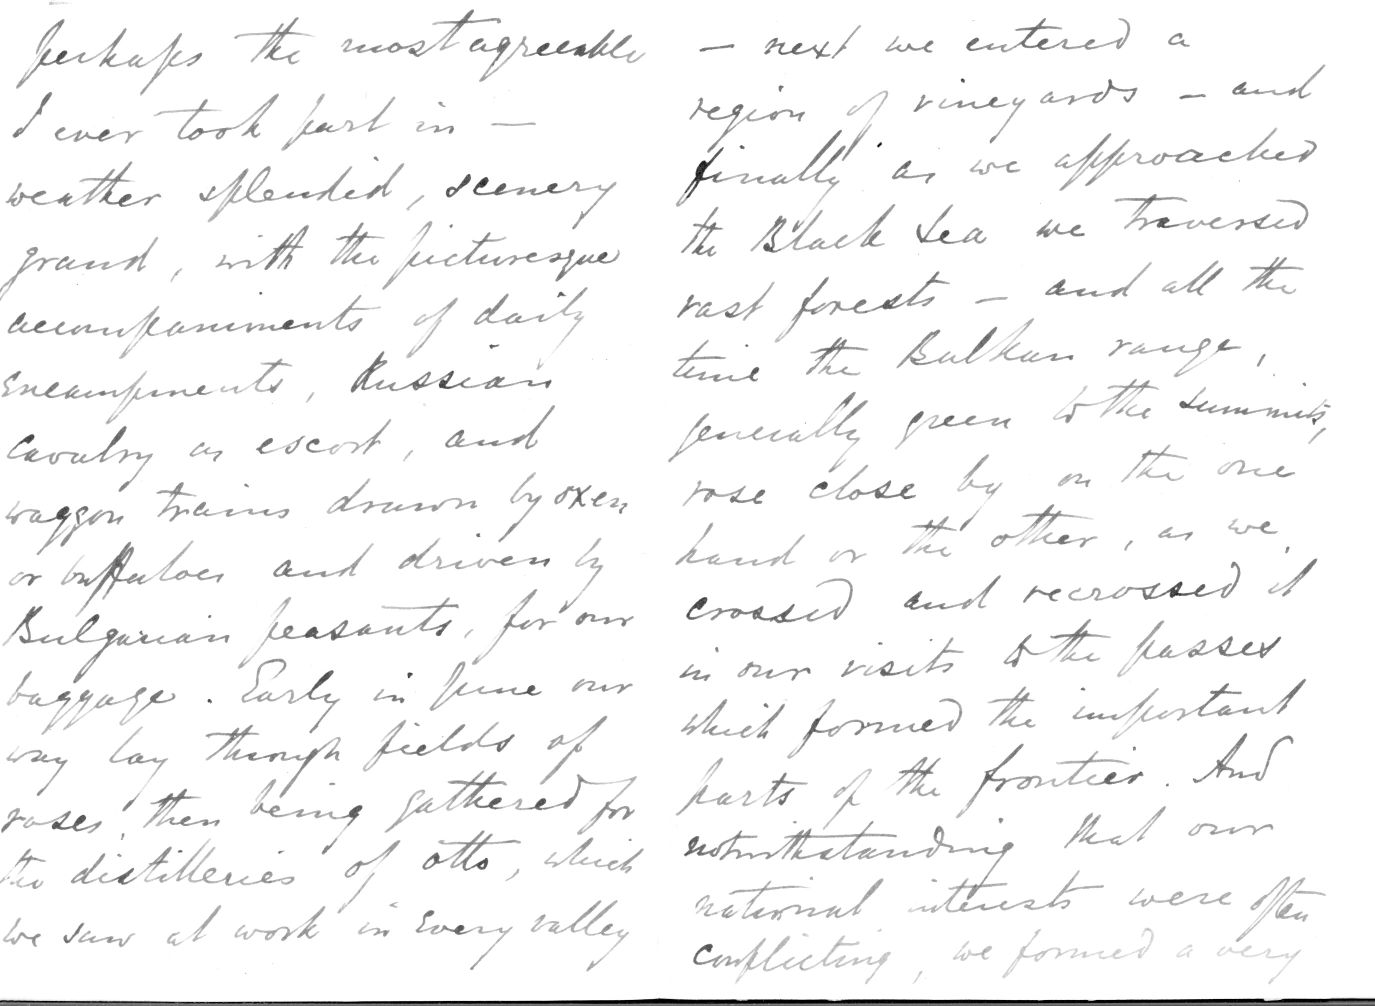 perhaps the most agreeable
I ever took part in —
weather splendid, scenery
grand, with the picturesque
accompaniments of daily
encampments, Russian
cavalry as escort, and
waggon trains drawn by oxen
or buffaloes and driven by
Bulgarian peasants, for our
baggage. Early in June our
way lay through fields of
roses, then being gathered for
the distilleries of otto, which
we saw at work in every valley
— next we entered a
region of vineyards — and
finally as we approached
the Black Sea we traversed
vast forests — and all the
time the Balkan range,
generally green to the summits,
rose close by on the one
hand or the other, as we
crossed and recrossed it
in our visits to the passes
which formed the important
parts of the frontier. And
notwithstanding that our
national interests were often
conflicting, we formed a very